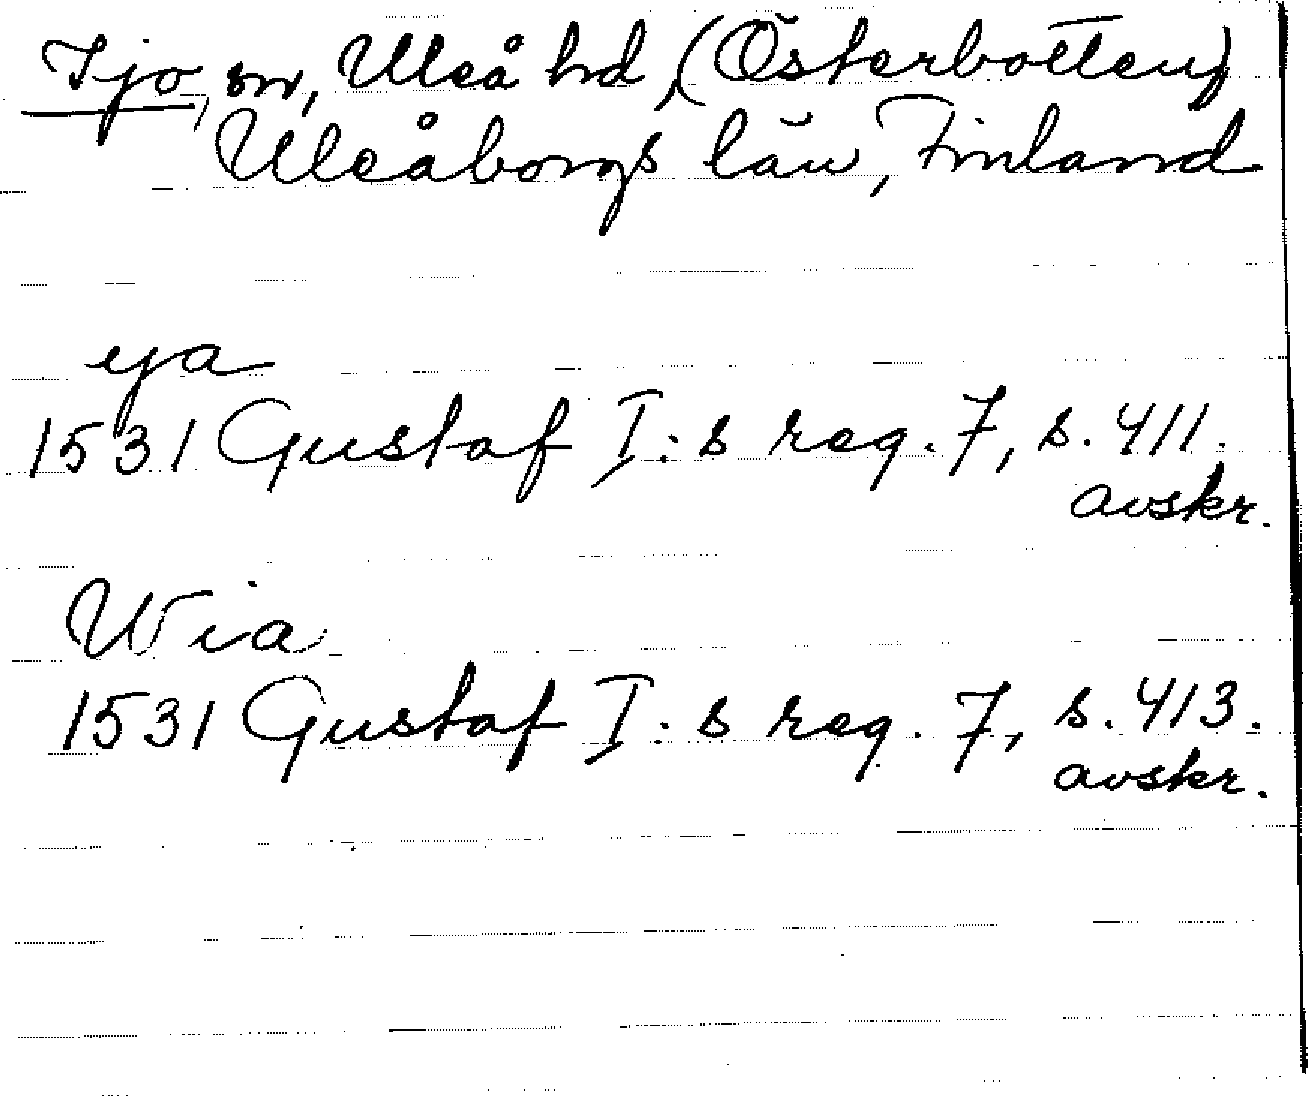 Ijo, sn, Uleå hd, (Österbotten)
Uleåborgs län, Finland
ya
1531 Gustaf I:s reg. 7, s. 411.
avskr.
Wia
1531 Gustaf I:s reg. 7, s. 413.
avskr.